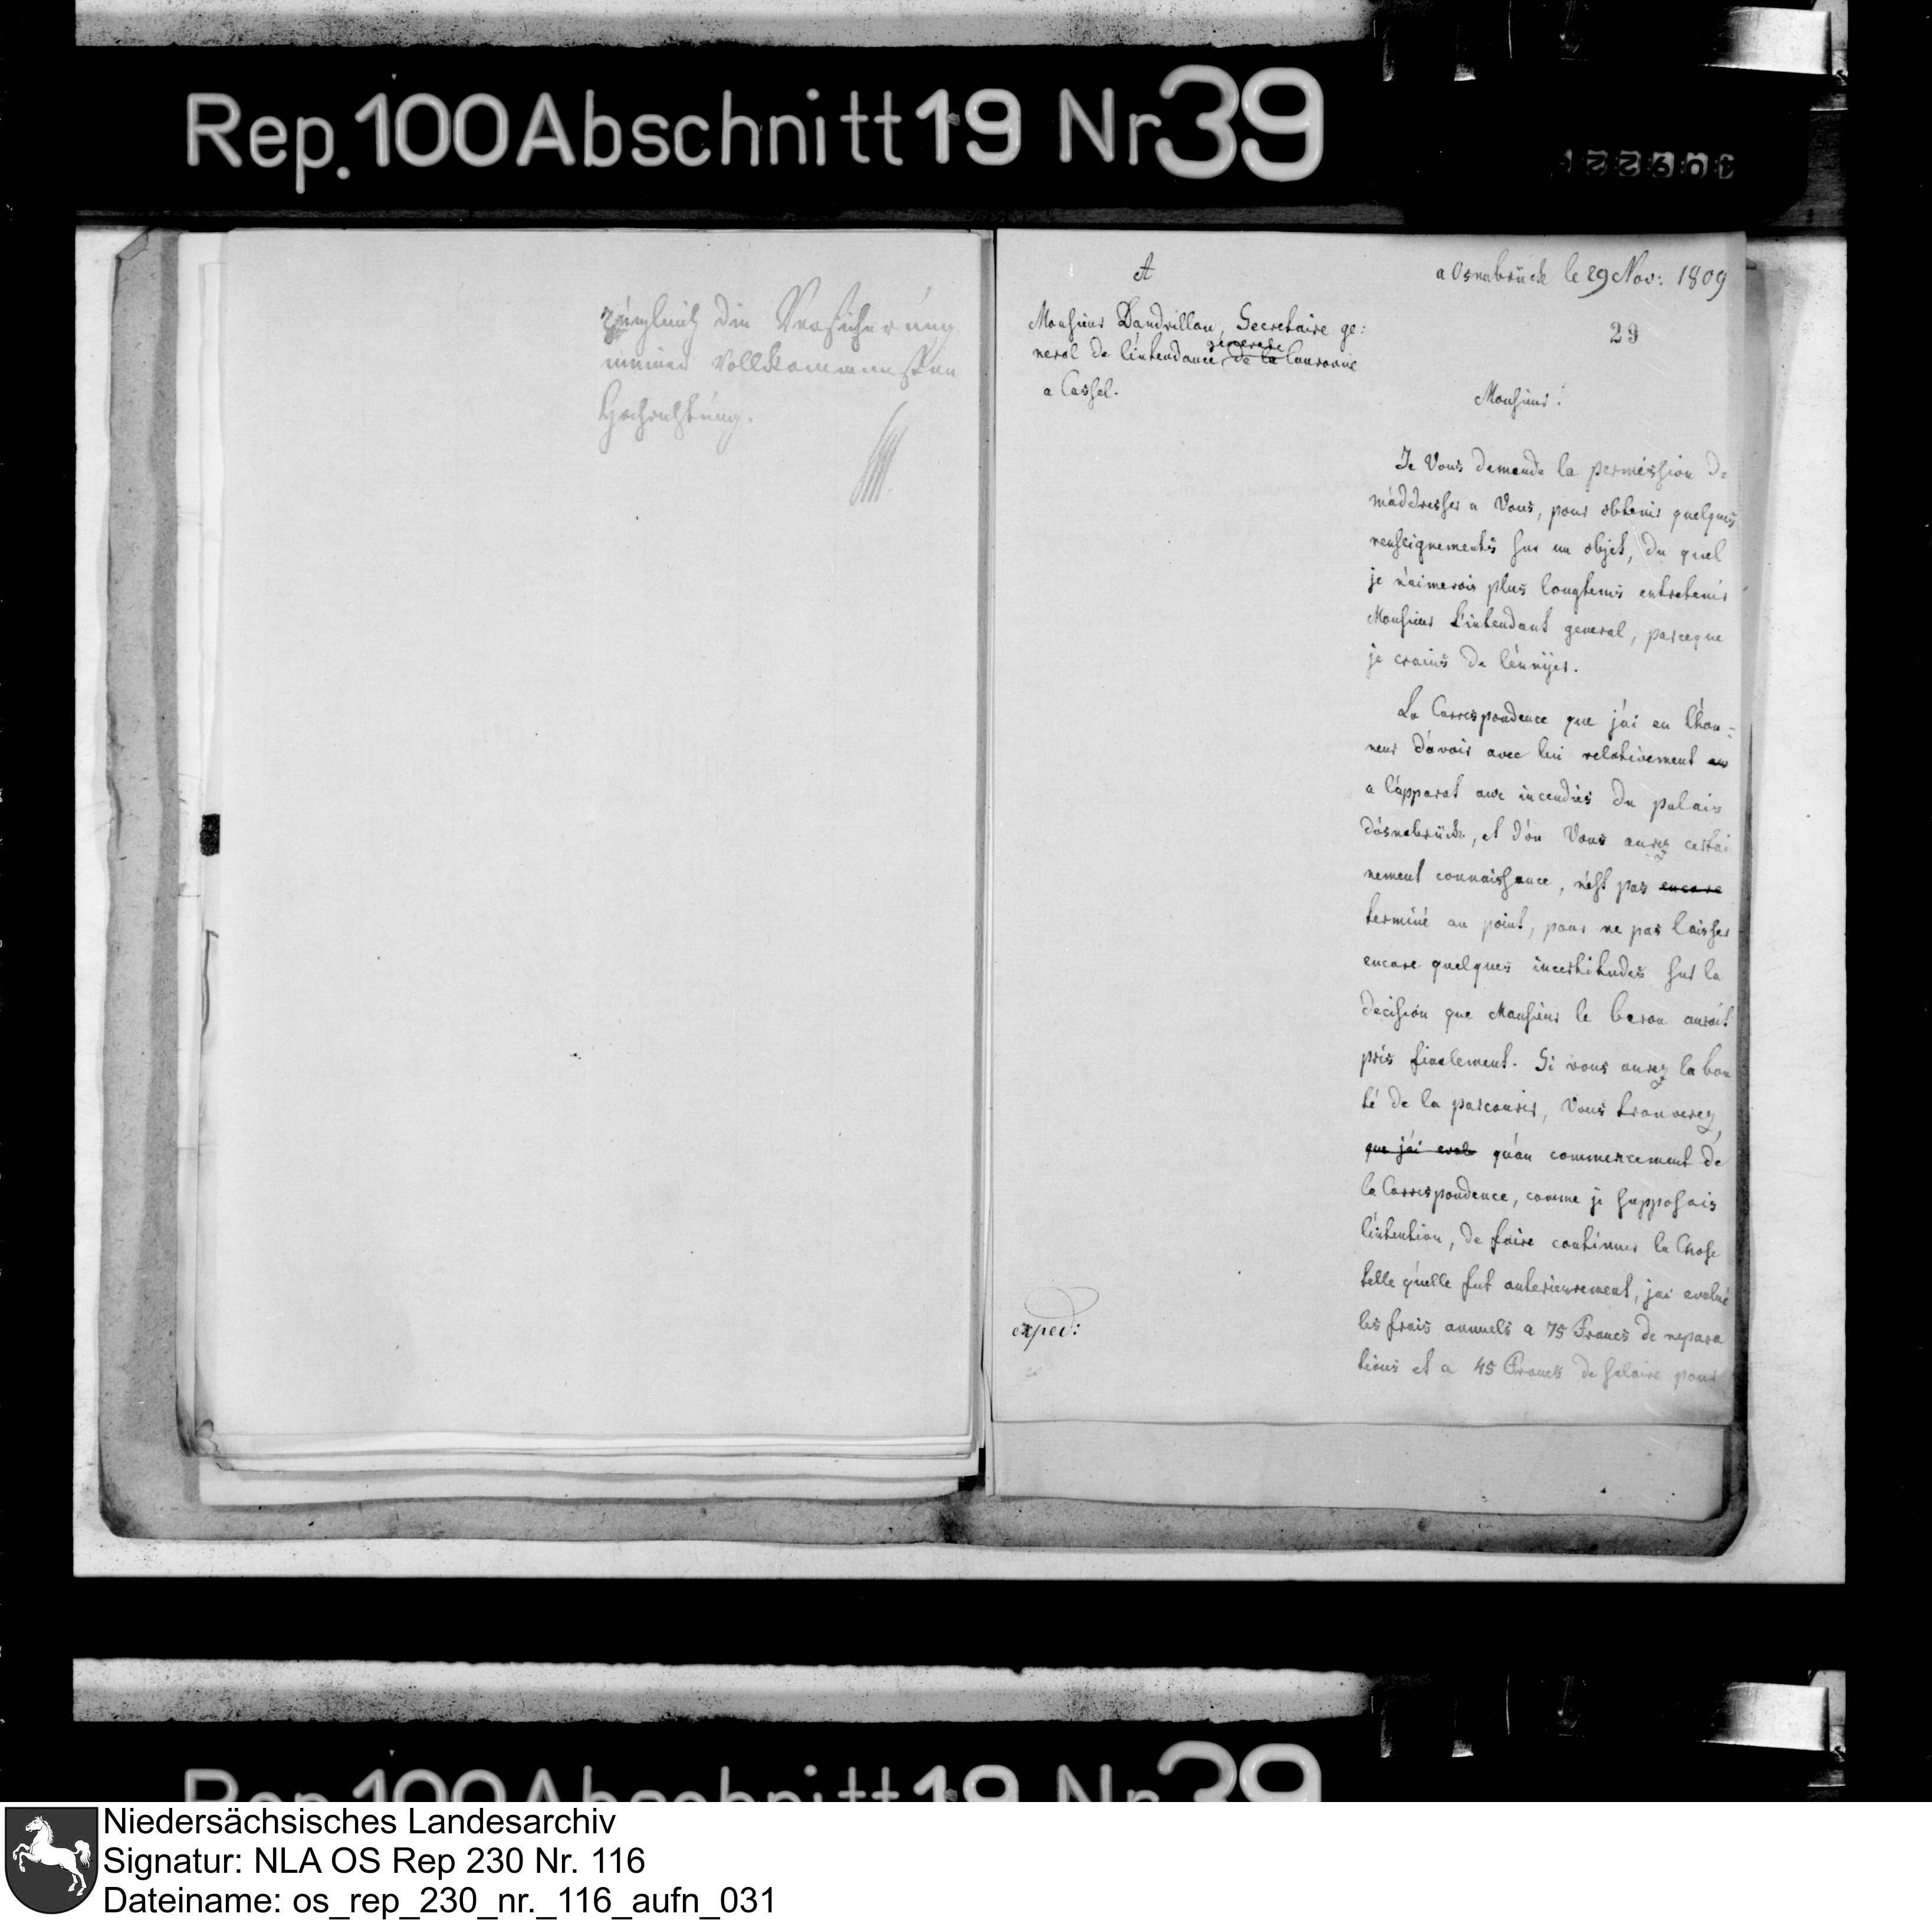 Rep. 100 Abschnitt 19 Nr 39
zugleich die Versicherung
meiner vollkommensten
Hochachtung.
A
Monsieur Dandrillon, Secretaire ge:
neral de l'intendance generale de la Couronne
a Cassel.
a Osnabrück le 29 Nov: 1809
29
Monsieur!
Je Vous demande la permission de
m'addresser a Vous, pour obtenir quelques
renseignements sur un objet, du quel
je n'aimerois plus longtems entretenir
Monsieur L'intendant general, parceque
je crains de l'énnyer.
La Correspondence que j'ai eu l'hon:
neur d'avoir avec lui relativement au
a l'apparat aux incendies du palais
d'osnabrück, et d'ou Vous aurez certai
nement connaissance, n'est pas encore
terminé au point, pour ne pas laisser
encore quelques incertitudes sur la
decision que Monsieur le baron auroit
pris finalement. Si vous aurez la bon
té de la parcourir, Vous trouverez,
que j'ai evalu qu'au commencement de
la Correspondence, comme je supposais
l'intention, de faire continuer la Chose
telle qu'elle fut anterieurement, j'ai evalué
les frais annuels a 75 Francs de repara
tions et a 45 Francs de salaire pour
exped:
Rep. 100 Abschnitt 19 Nr 39
Niedersächsisches Landesarchiv
Signatur: NLA OS Rep 230 Nr. 116
Dateiname: os_rep_230_nr._116_aufn_031